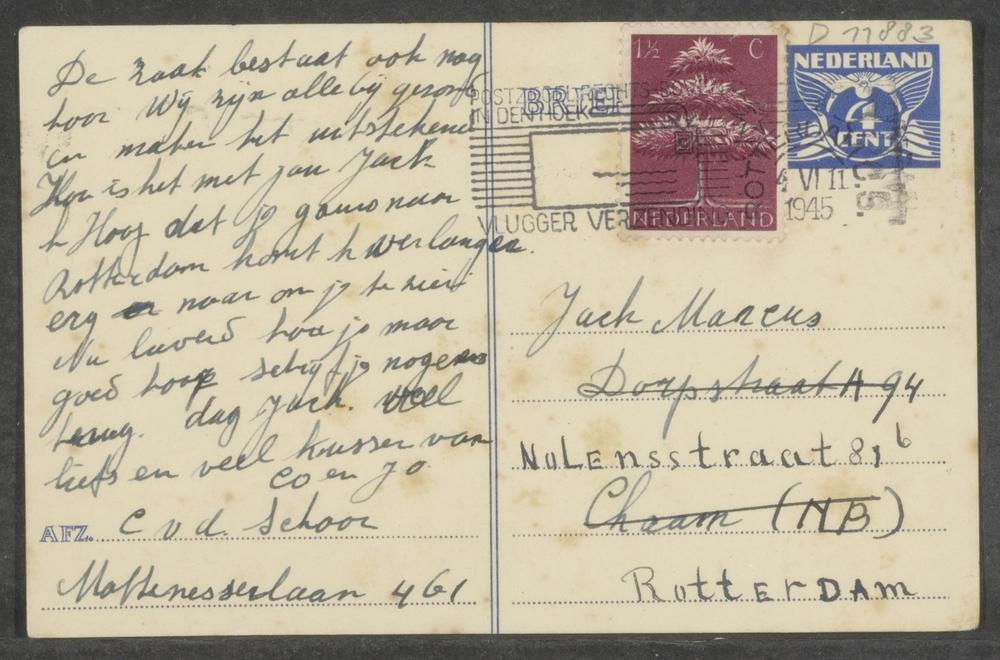 D 11883
De zaak bestaat ook nog
hoor Wij zijn alle bij gezond
en maken het uitstekend
Hoe is het met jou Jack
k Hoop dat je gauw naar
Rotterdam komt k verlangen
erg naar om je te zien
Nu luierd hou je maar
goed hoop schrijf je nog eens
terug. dag Jack. veel
liefs en veel kussen van
Co en Jo
AFZ. C v d. Schoor
Mathenesserlaan 461
BRIEFKAART
POSTZEGEL RECHTS
IN DEN HOEK
VLUGGER VERZENDING
ROTTERDAM
4 VI 11
1945
1½ C
NEDERLAND
NEDERLAND
4
CENT
Jack Marcus
Dorpstraat A 94
Nolensstraat 81b
Chaam (NB)
Rotterdam